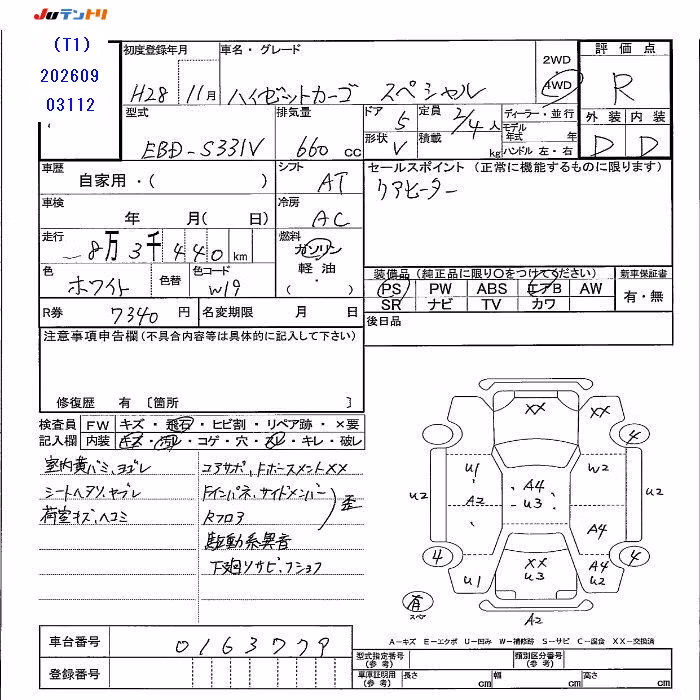 JUテントリ
(T1)
202609
03112
初度登録年月
H28 11月
車名・グレード
ハイゼットカーゴ スペシャル
2WD
4WD
評価点
R
外装 内装
D D
型式
EBD-S331V
排気量
660 cc
ドア 5
形状 V
定員 2/4人
積載 kg
ディーラー・並行
モデル年式 年
ハンドル 左・右
車歴
自家用・( )
シフト
AT
セールスポイント (正常に機能するものに限ります)
リアヒーター
車検
年 月( 日)
冷房
AC
走行
8万3千440km
燃料
ガソリン
軽油・
( )
色
ホワイト
色替
色コード
W19
装備品 (純正品に限り○をつけてください)
PS PW ABS エアB AW
SR ナビ TV カワ
新車保証書
有・無
R券 7340 円
名変期限 月 日
後日品
注意事項申告欄 (不具合内容等は具体的に記入して下さい)
修復歴 有 〔箇所 〕
検査員記入欄
FW キズ・飛石・ヒビ割・リペア跡・×要
内装 キズ・汚レ・コゲ・穴・スレ・キレ・破レ
室内黄バミ、ヨゴレ
シートヘタリ、ヤブレ
荷室キズ、ヘコミ
コアサポ、Fホースメント××
Fインパネ、サイドメンバー
Rフロア
歪
駆動系異音
下廻リサビ、フショク
XX XX
4 4
U1 W2
U2 A2 A4 U3 U2
A4
4 XX 4
U1 U3 A4 U2
有
スペア
A2
A-キズ E-エクボ U-凹み W-補修跡 S-サビ C-腐食 XX-交換済
車台番号 0163779
登録番号
型式指定番号 (参考)
類別区分番号 (参考)
車庫証明用 (参考) 長さ cm 幅 cm 高さ cm